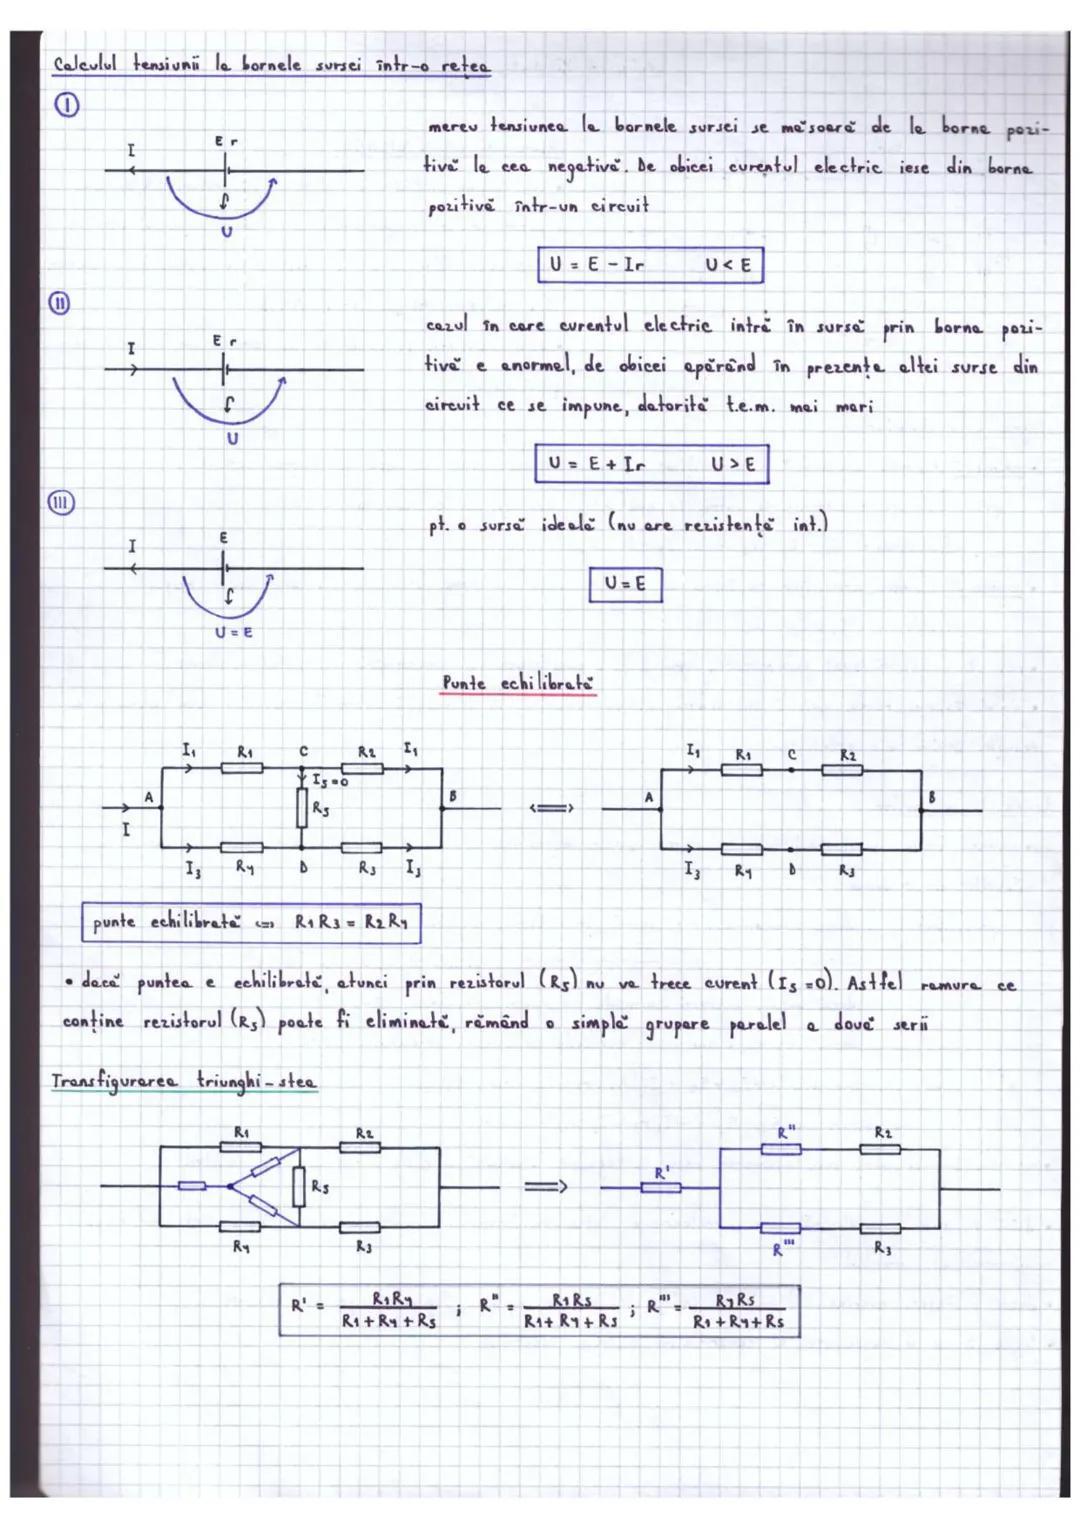 Calculul tensiunii la bornele sursei într-o rețea
I
I
E r
U
mereu tensiunea la bornele sursei se măsoară de la borna pozi-
tivă la cea negativă. De obicei curentul electric iese din borna
pozitivă într-un circuit
U = E - Ir U < E
II
I
E r
U
cazul în care curentul electric intră în sursă prin borna pozi-
tivă e anormal, de obicei apărând în prezența altei surse din
circuit ce se impune, datorită t.e.m. mai mari
U = E + Ir U > E
III
I
E
U = E
pt. o sursă ideală (nu are rezistență int.)
U = E
Punte echilibrată
I₁ R₁ C R₂ I₁
I₅=0
A B
R₅
I
I₃ R₄ D R₃ I₃
<=>
I₁ R₁ C R₂
A B
I₃ R₄ D R₃
punte echilibrată <=> R₁R₃ = R₂R₄
• dacă puntea e echilibrată, atunci prin rezistorul (R₅) nu va trece curent (I₅ =0). Astfel ramura ce
conține rezistorul (R₅) poate fi eliminată, rămând o simplă grupare paralel a două serii
Transfigurarea triunghi - stea
R₁ R₂
R₅
R₄ R₃
=>
R" R₂
R'
R''' R₃
R' = R₁R₄ / R₁+R₄+R₅ ; R" = R₁R₅ / R₁+R₄+R₅ ; R''' = R₄R₅ / R₁+R₄+R₅